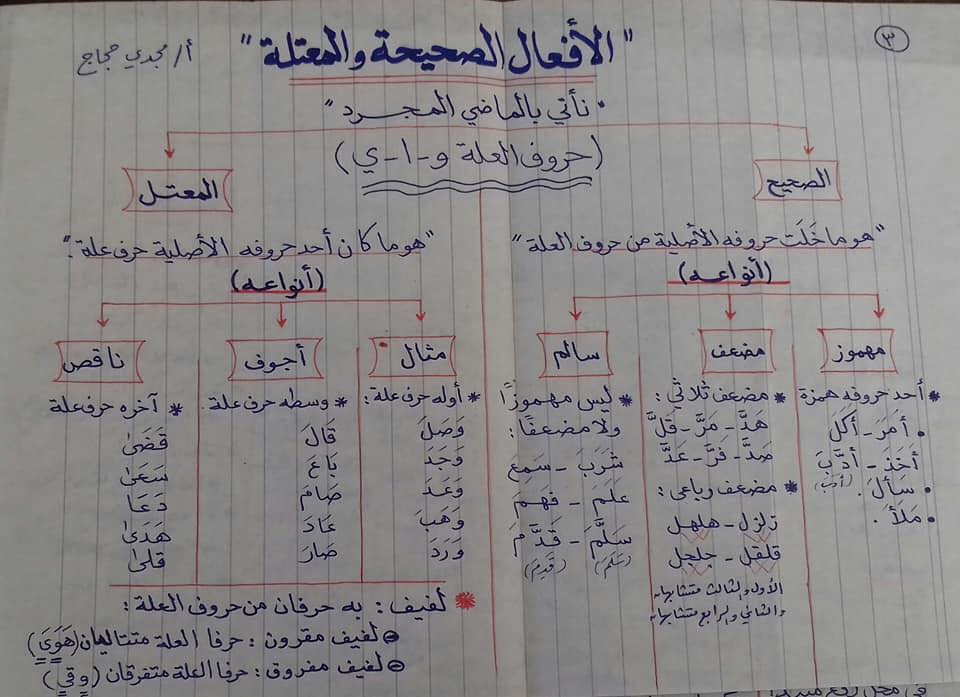 ٣
"الأفعال الصحيحة والمعتلة"
أ/ مجدي حجاج
• نأتي بالماضي المجرد "
(حروف العلة و-ا-ي)
الصحيح
"هو ما خَلَت حروفه الأصلية من حروف العلة"
(أنواعه)
مهموز
* أحد حروفه همزة
• أمَرَ - أكَلَ
أخَذَ - أدَّبَ
(أدب)
• سَألَ
• مَلأَ
مضعف
* مضعف ثلاثي:
هَدَّ - مَرَّ - قَلَّ
صَدَّ - فَرَّ - عَدَّ
* مضعف رباعي:
زلزل - هلهل
قلقل - جلجل
الأول والثالث متشابهان
والثاني والرابع متشابهان
سالم
* ليس مهموزًا
ولا مضعفًا:
شَرِبَ - سَمِعَ
عَلِمَ - فَهِمَ
سَلَّمَ - قَدَّمَ
(سَلِمَ) (قَدِمَ)
المعتل
"هو ما كان أحد حروفه الأصلية حرف علة:"
(أنواعه)
مثال
* أوله حرف علة:
وَصَلَ
وَجَدَ
وَعَدَ
وَهَبَ
وَرَدَ
أجوف
* وسطه حرف علة.
قَالَ
بَاعَ
صَامَ
عَادَ
صَارَ
ناقص
* آخره حرف علة
قَضَىٰ
سَعَىٰ
دَعَا
هَدَىٰ
قلىٰ
* لفيف: به حرفان من حروف العلة:
لفيف مقرون: حرفا العلة متتاليان (هَوَىٰ)
لفيف مفروق: حرفا العلة متفرقان (وقي)